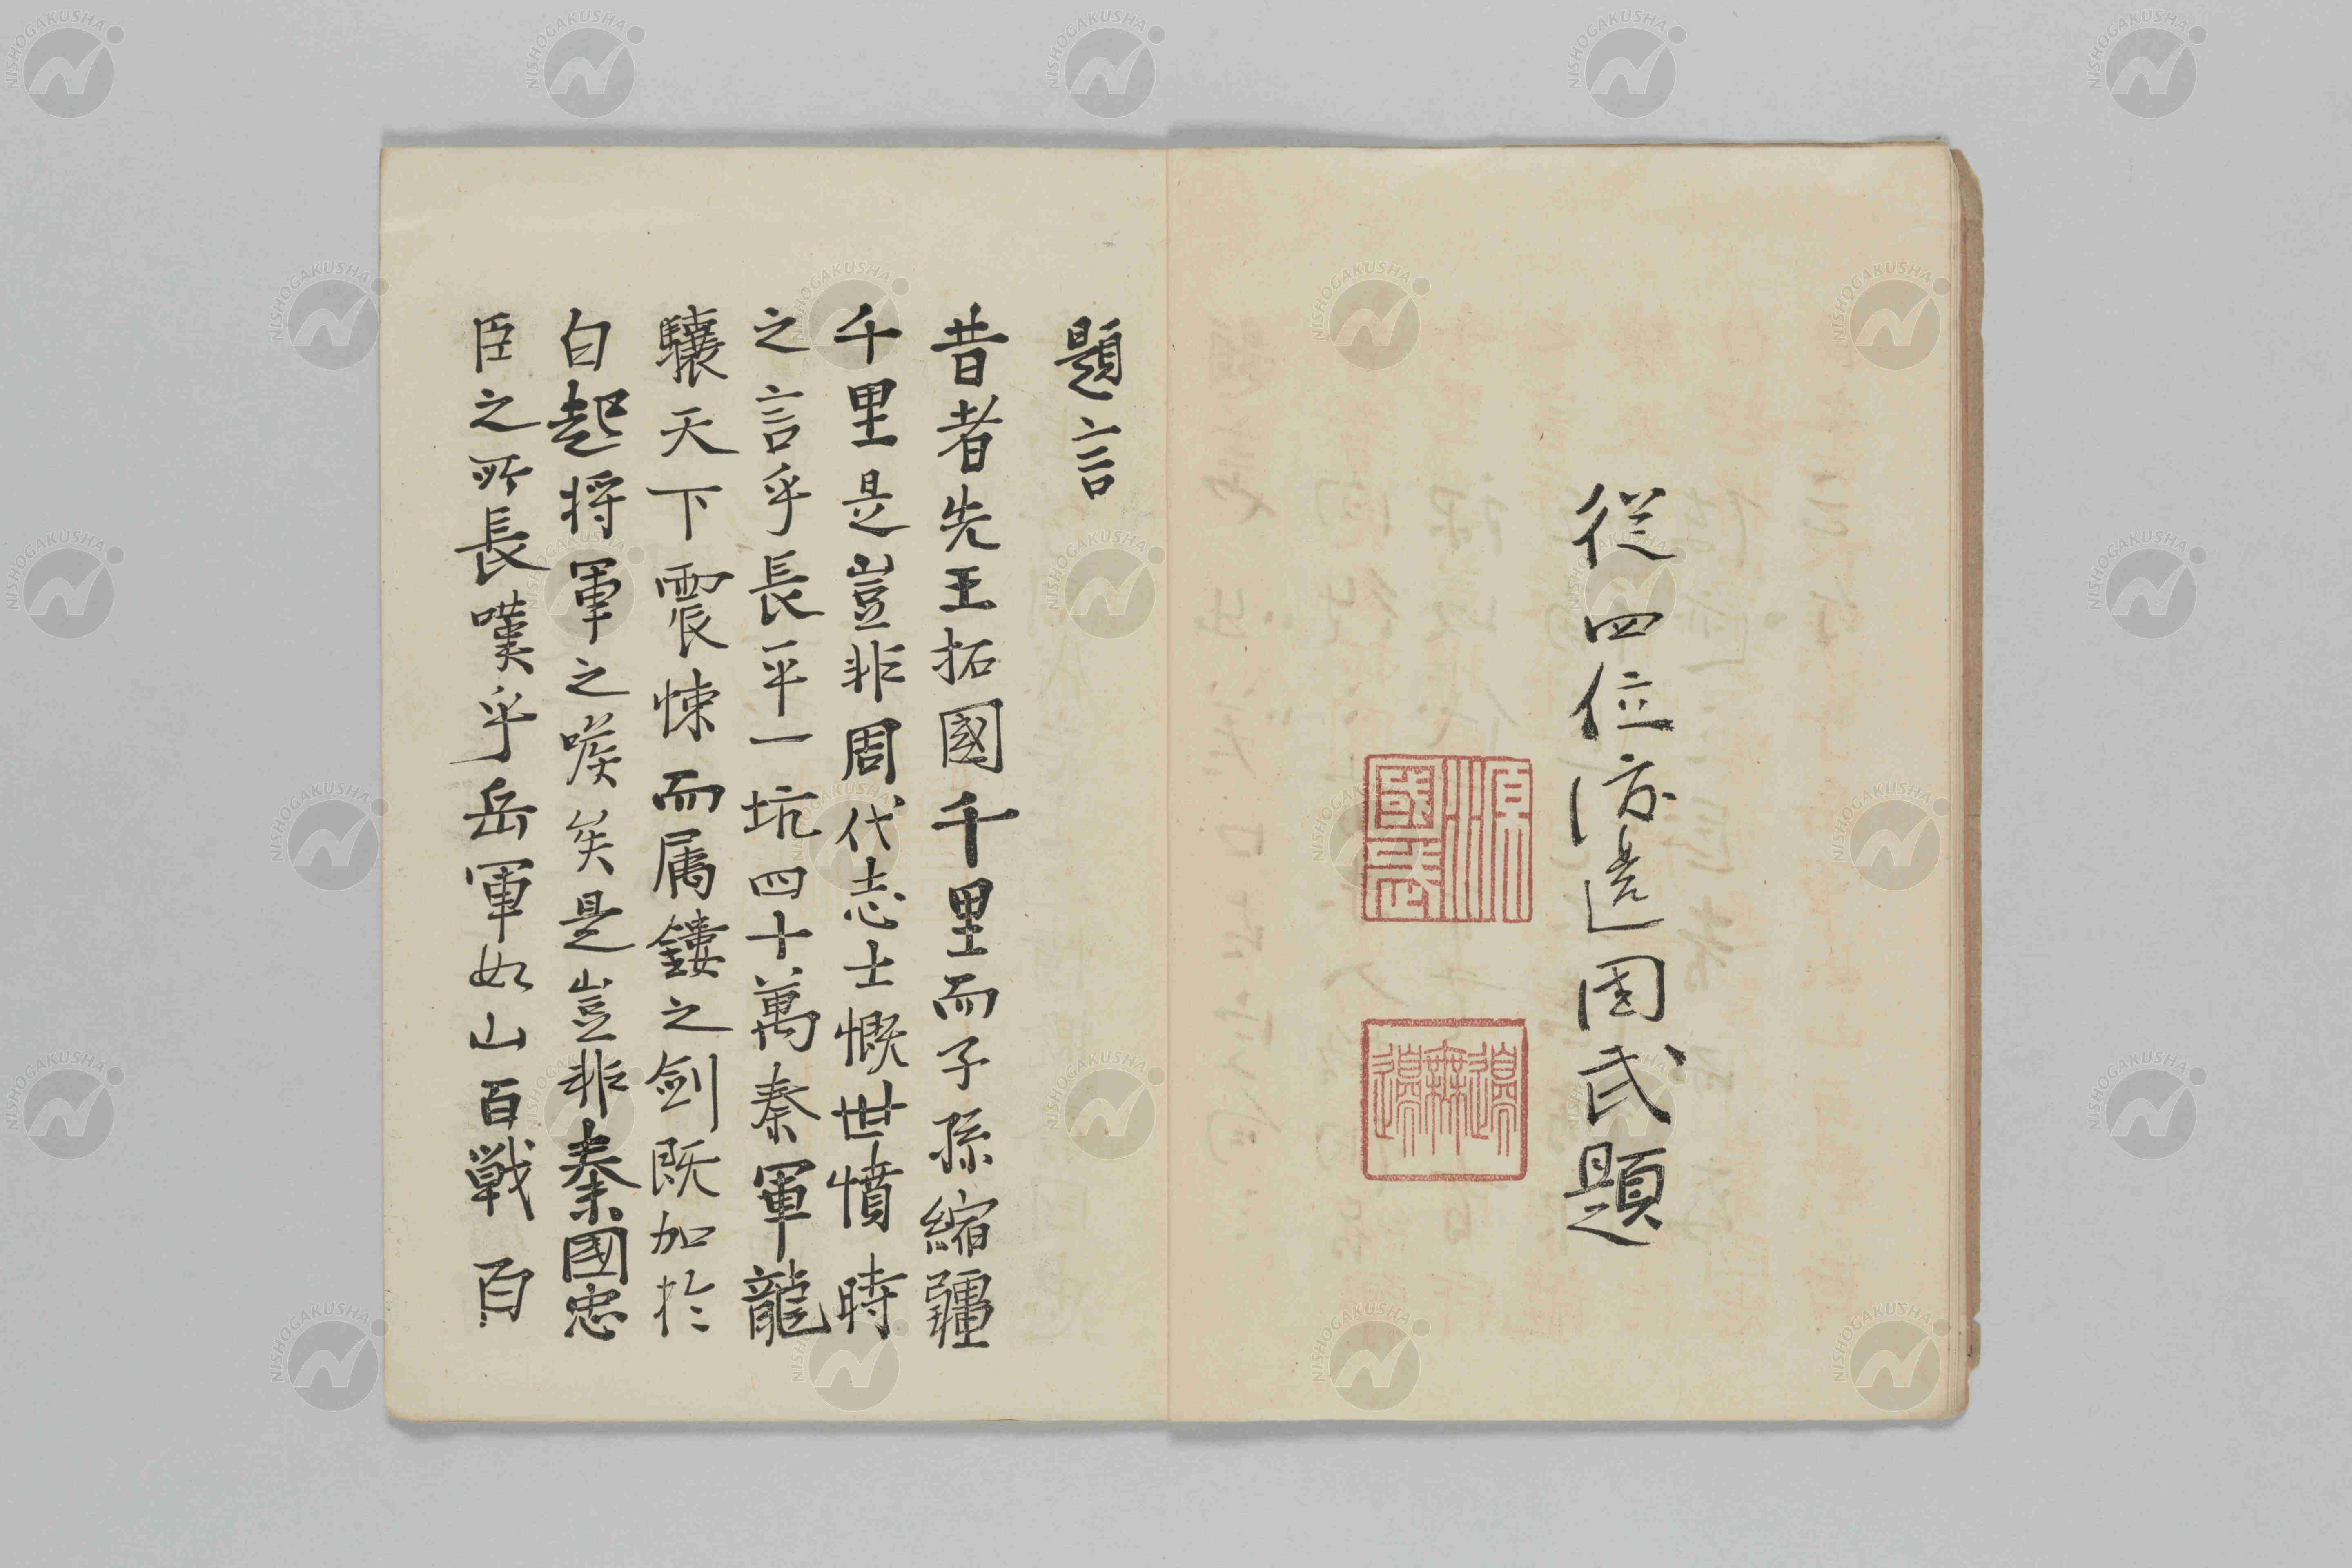 従四位渡邊國武題
源國武
題言
昔者先王拓國千里而子孫縮疆
千里是豈非周代志士慨世憤時
之言乎長平一坑四十萬秦軍龍
驤天下震悚而属鏤之剣既加於
白起将軍之喉矣是豈非秦國忠
臣之所長嘆乎岳軍如山百戦百
NISHOGAKUSHA